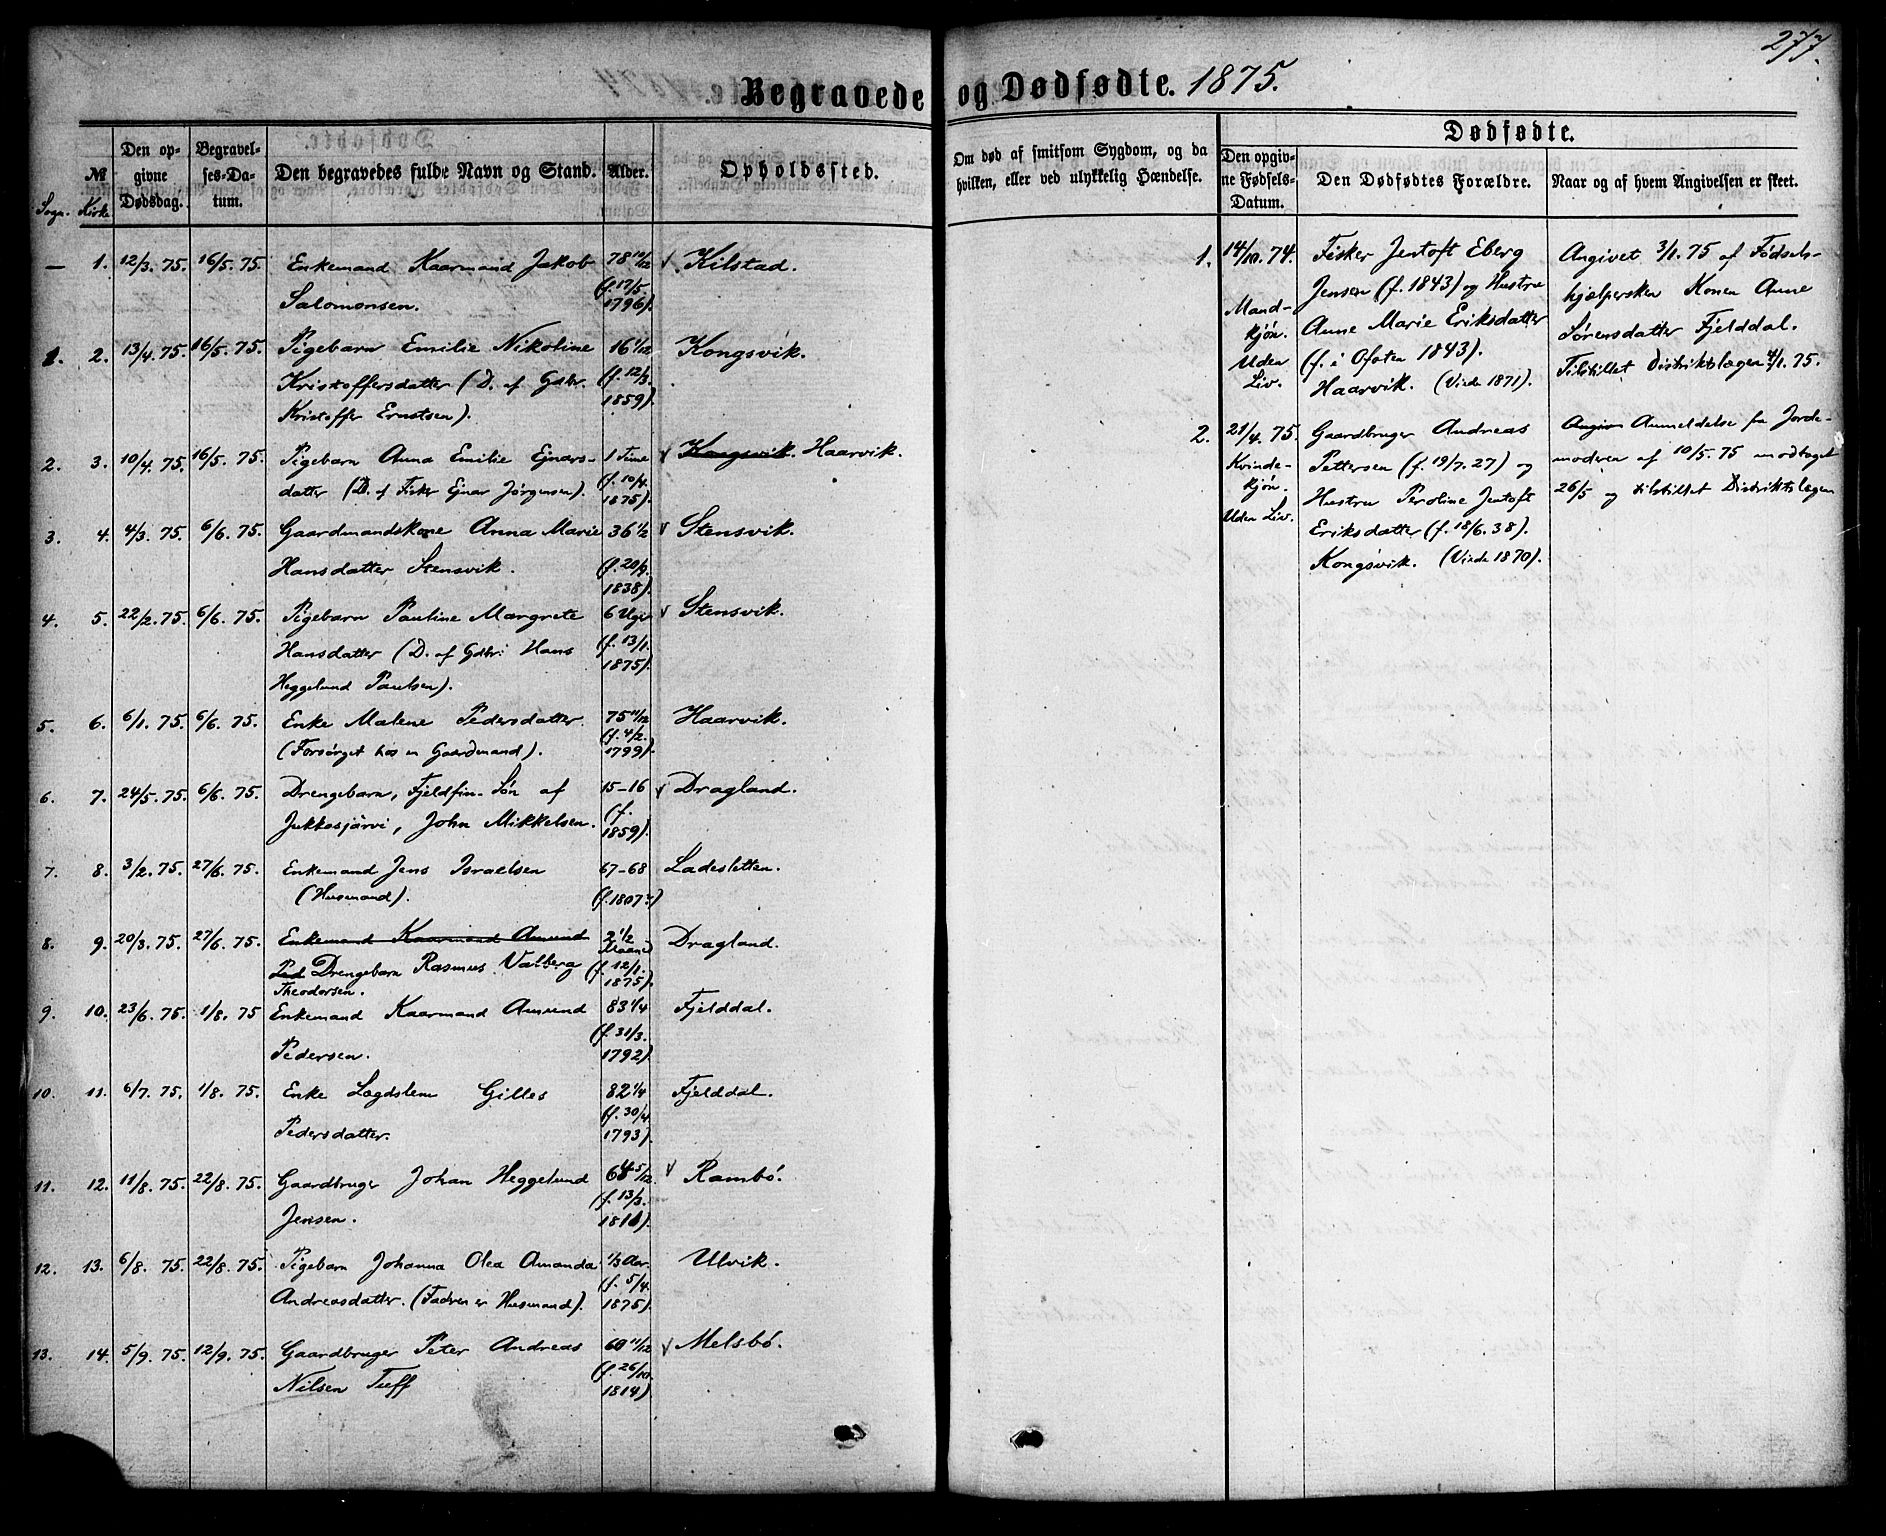 277.
Begravede og Dødfødte. 1875.
Sogn. № Kirke
Den opgivne Dødsdag.
Begravelses-Datum.
Den begravedes fulde Navn og Stand.
Alder.
Opholdssted.
Om død af smitsom Sygdom, og da hvilken, eller ved ulykkelig Hændelse.
Dødfødte.
Den opgivne Fødsels-Datum.
Den Dødfødtes Forældre.
Naar og af hvem Angivelsen er skeet.
— 1. 12/3. 75. 16/5. 75. Enkemand Kaarmand Jakob 78 10/12 Kilstad.
Salomonsen. (f. 17/5. 1796).
1. 2. 13/4. 75. 16/5. 75. Pigebarn Emilie Nikoline 16 1/12 Kongsvik.
Kristoffersdatter (D. af Gdbr. (f. 12/3.
Kristoffer Ernstsen). 1859).
2. 3. 10/4. 75. 16/5. 75. Pigebarn Anna Emilie Ejnars- 1 Time Kongsvik. Haarvik.
datter (D. af Fisker Ejnar Jørgensen). (f. 10/4. 1875).
3. 4. 4/3. 75. 6/6. 75. Gaardmandskone Anna Marie 36 1/2 Stensvik.
Hansdatter Stensvik. (f. 20/9. 1838).
4. 5. 22/2. 75. 6/6. 75. Pigebarn Pauline Margrete 6 Uger Stensvik.
Hansdatter (D. af Gdbr: Hans (f. 13/1.
Heggelund Paulsen). 1875).
5. 6. 6/1. 75. 6/6. 75. Enke Malene Pedersdatter. 75 11/12 Haarvik.
(Forsørget hos en Gaardmand). (f. 4/2. 1799).
6. 7. 24/5. 75. 6/6. 75. Drengebarn, Fjeldfin-Søn af 15-16 Dragland.
Jukkasjärvi, John Mikkelsen. (f. 1859).
7. 8. 3/2. 75. 27/6. 75. Enkemand Jens Israelsen 67-68 Ladesletten.
(Husmand). (f. 1807?)
8. 9. 20/3. 75. 27/6. 75. Enkemand Kaarmand Amund 2 1/2 Maaned Dragland.
Ped Drengebarn Rasmus Valberg (f. 12/1.
Theodorsen. 1875).
9. 10. 23/6. 75. 1/8. 75 Enkemand Kaarmand Amund 83 1/4 Fjelddal.
Pedersen. (f. 31/3. 1792).
10. 11. 6/7. 75. 1/8. 75. Enke Lægdslem Gilles 82 1/4 Fjelddal.
Pedersdatter. (f. 30/4. 1793).
11. 12. 11/8. 75. 22/8. 75. Gaardbruger Johan Heggelund 64 5/12. Rambø.
Jensen. (f. 13/3. 1811).
12. 13. 6/8. 75. 22/8. 75. Pigebarn Johanna Olea Amanda 1/3 Aar. Ulvik.
Andreasdatter. (Fadren er Husmand). (f. 5/4. 1875).
13. 14. 5/9. 75. 12/9. 75. Gaardbruger Peter Andreas 60 11/12 Melsbø.
Nilsen Tuff (f. 26/10. 1814).
1. 14/10. 74. Fisker Jentoft Eberg Angivet 3/1. 75 af Fødsels-
Jensen (f. 1843) og Hustru hjælpersken Konen Anne
Mandkjøn. Anne Marie Eriksdatter Sørensdatter Fjelddal.
Uden Liv. (f. i Ofoten 1843). Tilstillet Distriktslægen 4/1. 75.
Haarvik. (Viede 1871).
2. 21/4. 75. Gaardbruger Andreas Angiv Anmeldelse fra Jorde-
Kvindekjøn. Pettersen (f. 19/7. 27) og moderen af 10/5. 75 modtaget
Uden Liv. Hustru Peroline Jentoft 26/5 og tilstillet Distriktslægen
Eriksdatter (f. 18/6. 38).
Kongsvik. (Viede 1870).